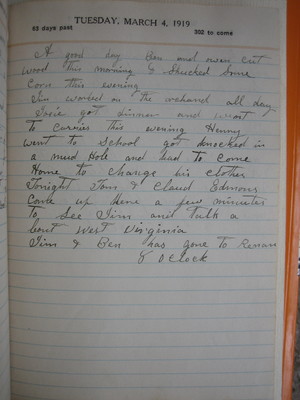 TUESDAY, MARCH 4, 1919
63 days past 302 to come
A good day Ben and owen cut
wood this morning & Shucked Some
Corn this evening
Jim worked on the all day
Susie got dinner and went
to Carries this evening Henry
went to School got knocked in
a mud Hole and had to Come
Home to change his clothes
Tonight Tom & Claud Edmons
Come up Here a few minutes
to See Jim and talk a
bout West Virginia
Jim & Ben has gone to Renan
8 O Clock